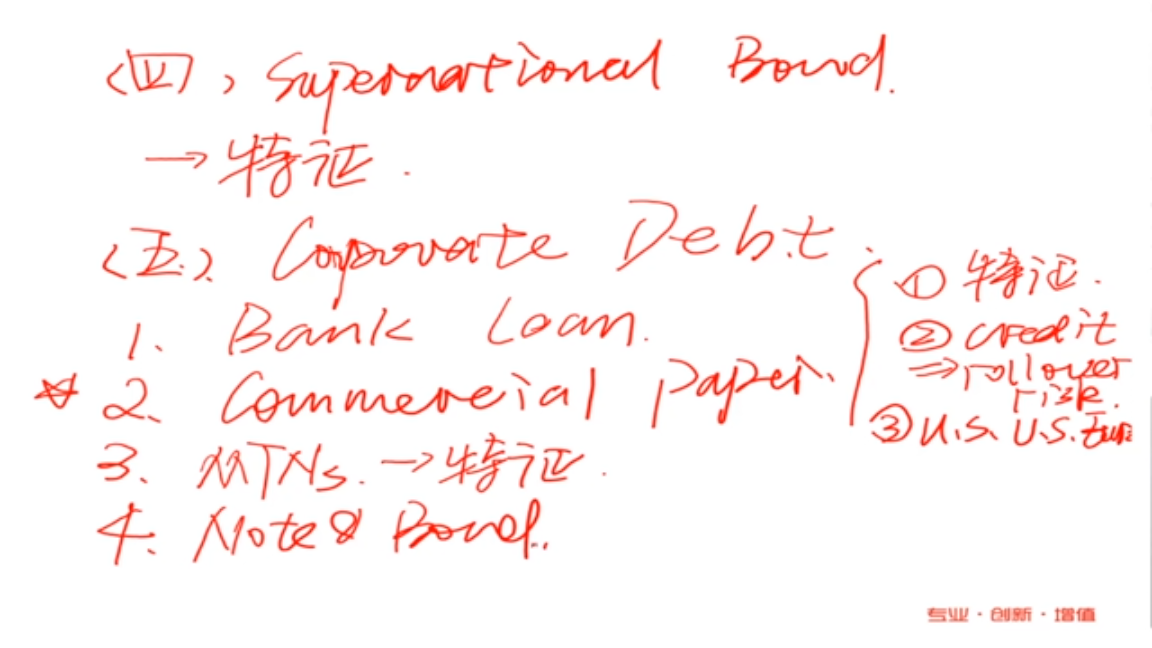 (四), Supernational Bond.
→特征.
(五). Corporate Debt.
1. Bank Loan.
☆ 2. Commercial paper.
3. MTNs. →特征.
4. Note & Bond.
① 特征.
② credit
⇒rollover
risk.
③ U.S. U.S. Euro
专业·创新·增值